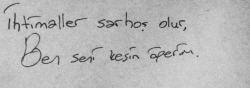 İhtimaller sarhoş olur,
Ben seni kesin öperim.